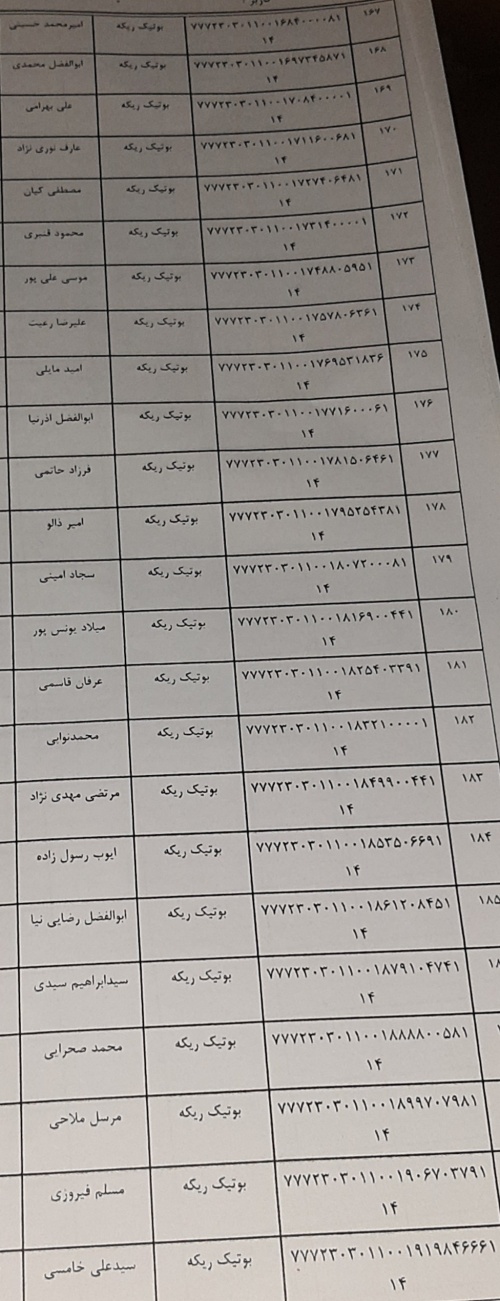 ۱۶۷ ۷۷۷۲۳۰۳۰۱۱۰۰۱۶۸۴۰۰۰۰۸۱ بوتیک ریکه امیرمحمد حسینی
۱۴
۱۶۸ ۷۷۷۲۳۰۳۰۱۱۰۰۱۶۹۷۳۴۵۸۷۱ بوتیک ریکه ابوالفضل محمدی
۱۴
۱۶۹ ۷۷۷۲۳۰۳۰۱۱۰۰۱۷۰۸۴۰۰۰۰۱ بوتیک ریکه علی بهرامی
۱۴
۱۷۰ ۷۷۷۲۳۰۳۰۱۱۰۰۱۷۱۱۶۰۰۶۸۱ بوتیک ریکه عارف نوری نژاد
۱۴
۱۷۱ ۷۷۷۲۳۰۳۰۱۱۰۰۱۷۲۷۴۰۶۴۸۱ بوتیک ریکه مصطفی کیان
۱۴
۱۷۲ ۷۷۷۲۳۰۳۰۱۱۰۰۱۷۳۱۴۰۰۰۰۱ بوتیک ریکه محمود قنبری
۱۴
۱۷۳ ۷۷۷۲۳۰۳۰۱۱۰۰۱۷۴۸۸۰۵۹۵۱ بوتیک ریکه موسی علی پور
۱۴
۱۷۴ ۷۷۷۲۳۰۳۰۱۱۰۰۱۷۵۷۸۰۶۳۶۱ بوتیک ریکه علیرضا رعیت
۱۴
۱۷۵ ۷۷۷۲۳۰۳۰۱۱۰۰۱۷۶۹۵۳۱۸۳۶ بوتیک ریکه امید مایلی
۱۴
۱۷۶ ۷۷۷۲۳۰۳۰۱۱۰۰۱۷۷۱۶۰۰۰۶۱ بوتیک ریکه ابوالفضل اذرنیا
۱۴
۱۷۷ ۷۷۷۲۳۰۳۰۱۱۰۰۱۷۸۱۵۰۶۴۶۱ بوتیک ریکه فرزاد حاتمی
۱۴
۱۷۸ ۷۷۷۲۳۰۳۰۱۱۰۰۱۷۹۵۲۵۴۳۸۱ بوتیک ریکه امیر ذالو
۱۴
۱۷۹ ۷۷۷۲۳۰۳۰۱۱۰۰۱۸۰۷۲۰۰۰۸۱ بوتیک ریکه سجاد امینی
۱۴
۱۸۰ ۷۷۷۲۳۰۳۰۱۱۰۰۱۸۱۶۹۰۰۴۴۱ بوتیک ریکه میلاد یونس پور
۱۴
۱۸۱ ۷۷۷۲۳۰۳۰۱۱۰۰۱۸۲۵۴۰۳۳۹۱ بوتیک ریکه عرفان قاسمی
۱۴
۱۸۲ ۷۷۷۲۳۰۳۰۱۱۰۰۱۸۳۲۱۰۰۰۰۱ بوتیک ریکه محمدنوابی
۱۴
۱۸۳ ۷۷۷۲۳۰۳۰۱۱۰۰۱۸۴۹۹۰۰۴۴۱ بوتیک ریکه مرتضی مهدی نژاد
۱۴
۱۸۴ ۷۷۷۲۳۰۳۰۱۱۰۰۱۸۵۳۵۰۶۶۹۱ بوتیک ریکه ایوب رسول زاده
۱۴
۱۸۵ ۷۷۷۲۳۰۳۰۱۱۰۰۱۸۶۱۲۰۸۴۵۱ بوتیک ریکه ابوالفضل رضایی نیا
۱۴
۷۷۷۲۳۰۳۰۱۱۰۰۱۸۷۹۱۰۴۷۴۱ بوتیک ریکه سیدابراهیم سیدی
۱۴
۷۷۷۲۳۰۳۰۱۱۰۰۱۸۸۸۸۰۰۵۸۱ بوتیک ریکه محمد صحرایی
۱۴
۷۷۷۲۳۰۳۰۱۱۰۰۱۸۹۹۷۰۷۹۸۱ بوتیک ریکه مرسل ملاحی
۱۴
۷۷۷۲۳۰۳۰۱۱۰۰۱۹۰۶۷۰۳۷۹۱ بوتیک ریکه مسلم فیروزی
۱۴
۷۷۷۲۳۰۳۰۱۱۰۰۱۹۱۹۸۴۶۶۶۱ بوتیک ریکه سیدعلی خامسی
۱۴